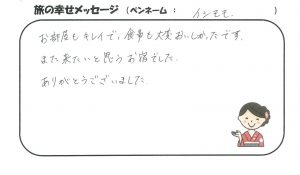 旅の幸せメッセージ（ペンネーム： インモモ ）
お部屋もキレイで、食事も大変おいしかったです。
また来たいと思うお宿でした。
ありがとうございました。